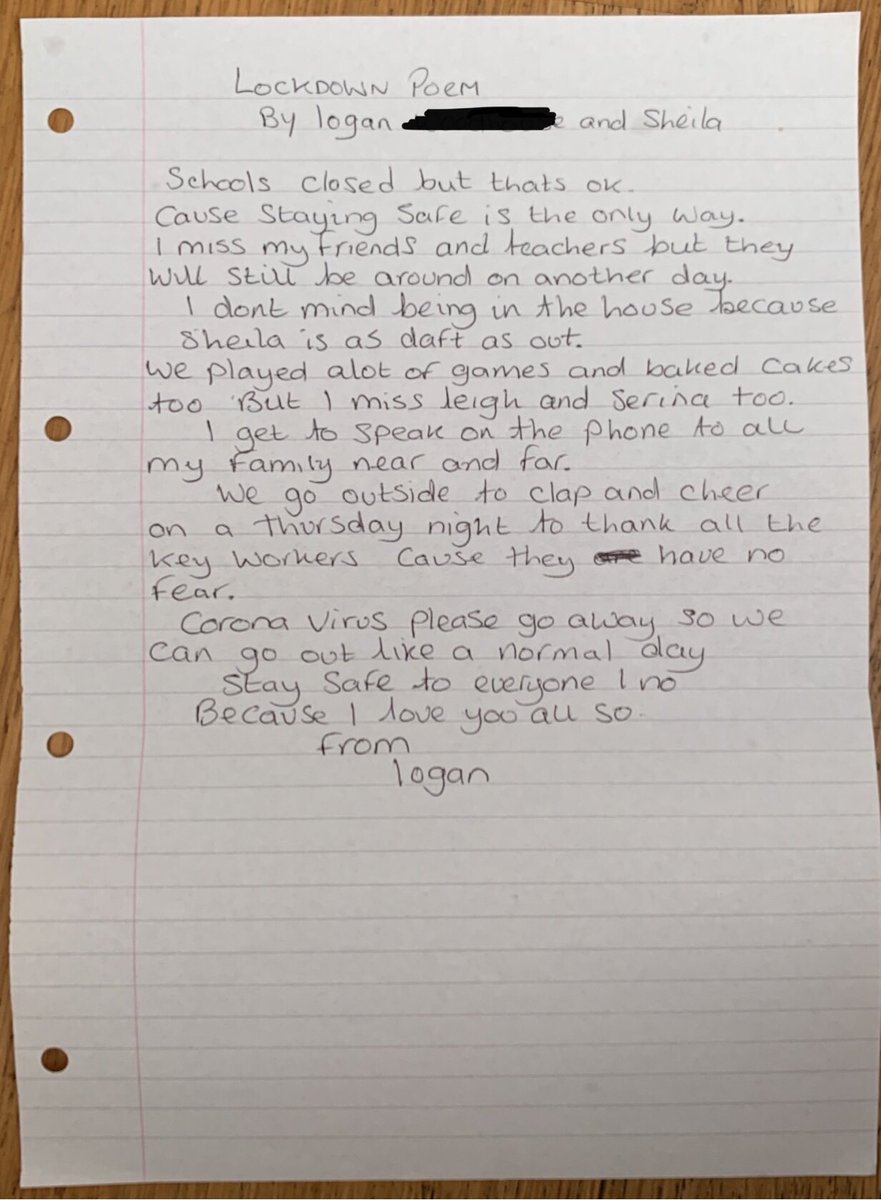 LOCKDOWN POEM
By logan and Sheila
Schools closed but thats ok.
Cause Staying Safe is the only way.
I miss my friends and teachers but they
will still be around on another day.
I dont mind being in the house because
Sheila is as daft as out.
We played alot of games and baked cakes
too But I miss leigh and Serina too.
I get to speak on the phone to all
my family near and far.
We go outside to clap and cheer
on a thursday night to thank all the
key workers cause they have no
fear.
Corona Virus please go away so we
can go out like a normal day
Stay Safe to everyone I no
Because I love you all so.
from
logan